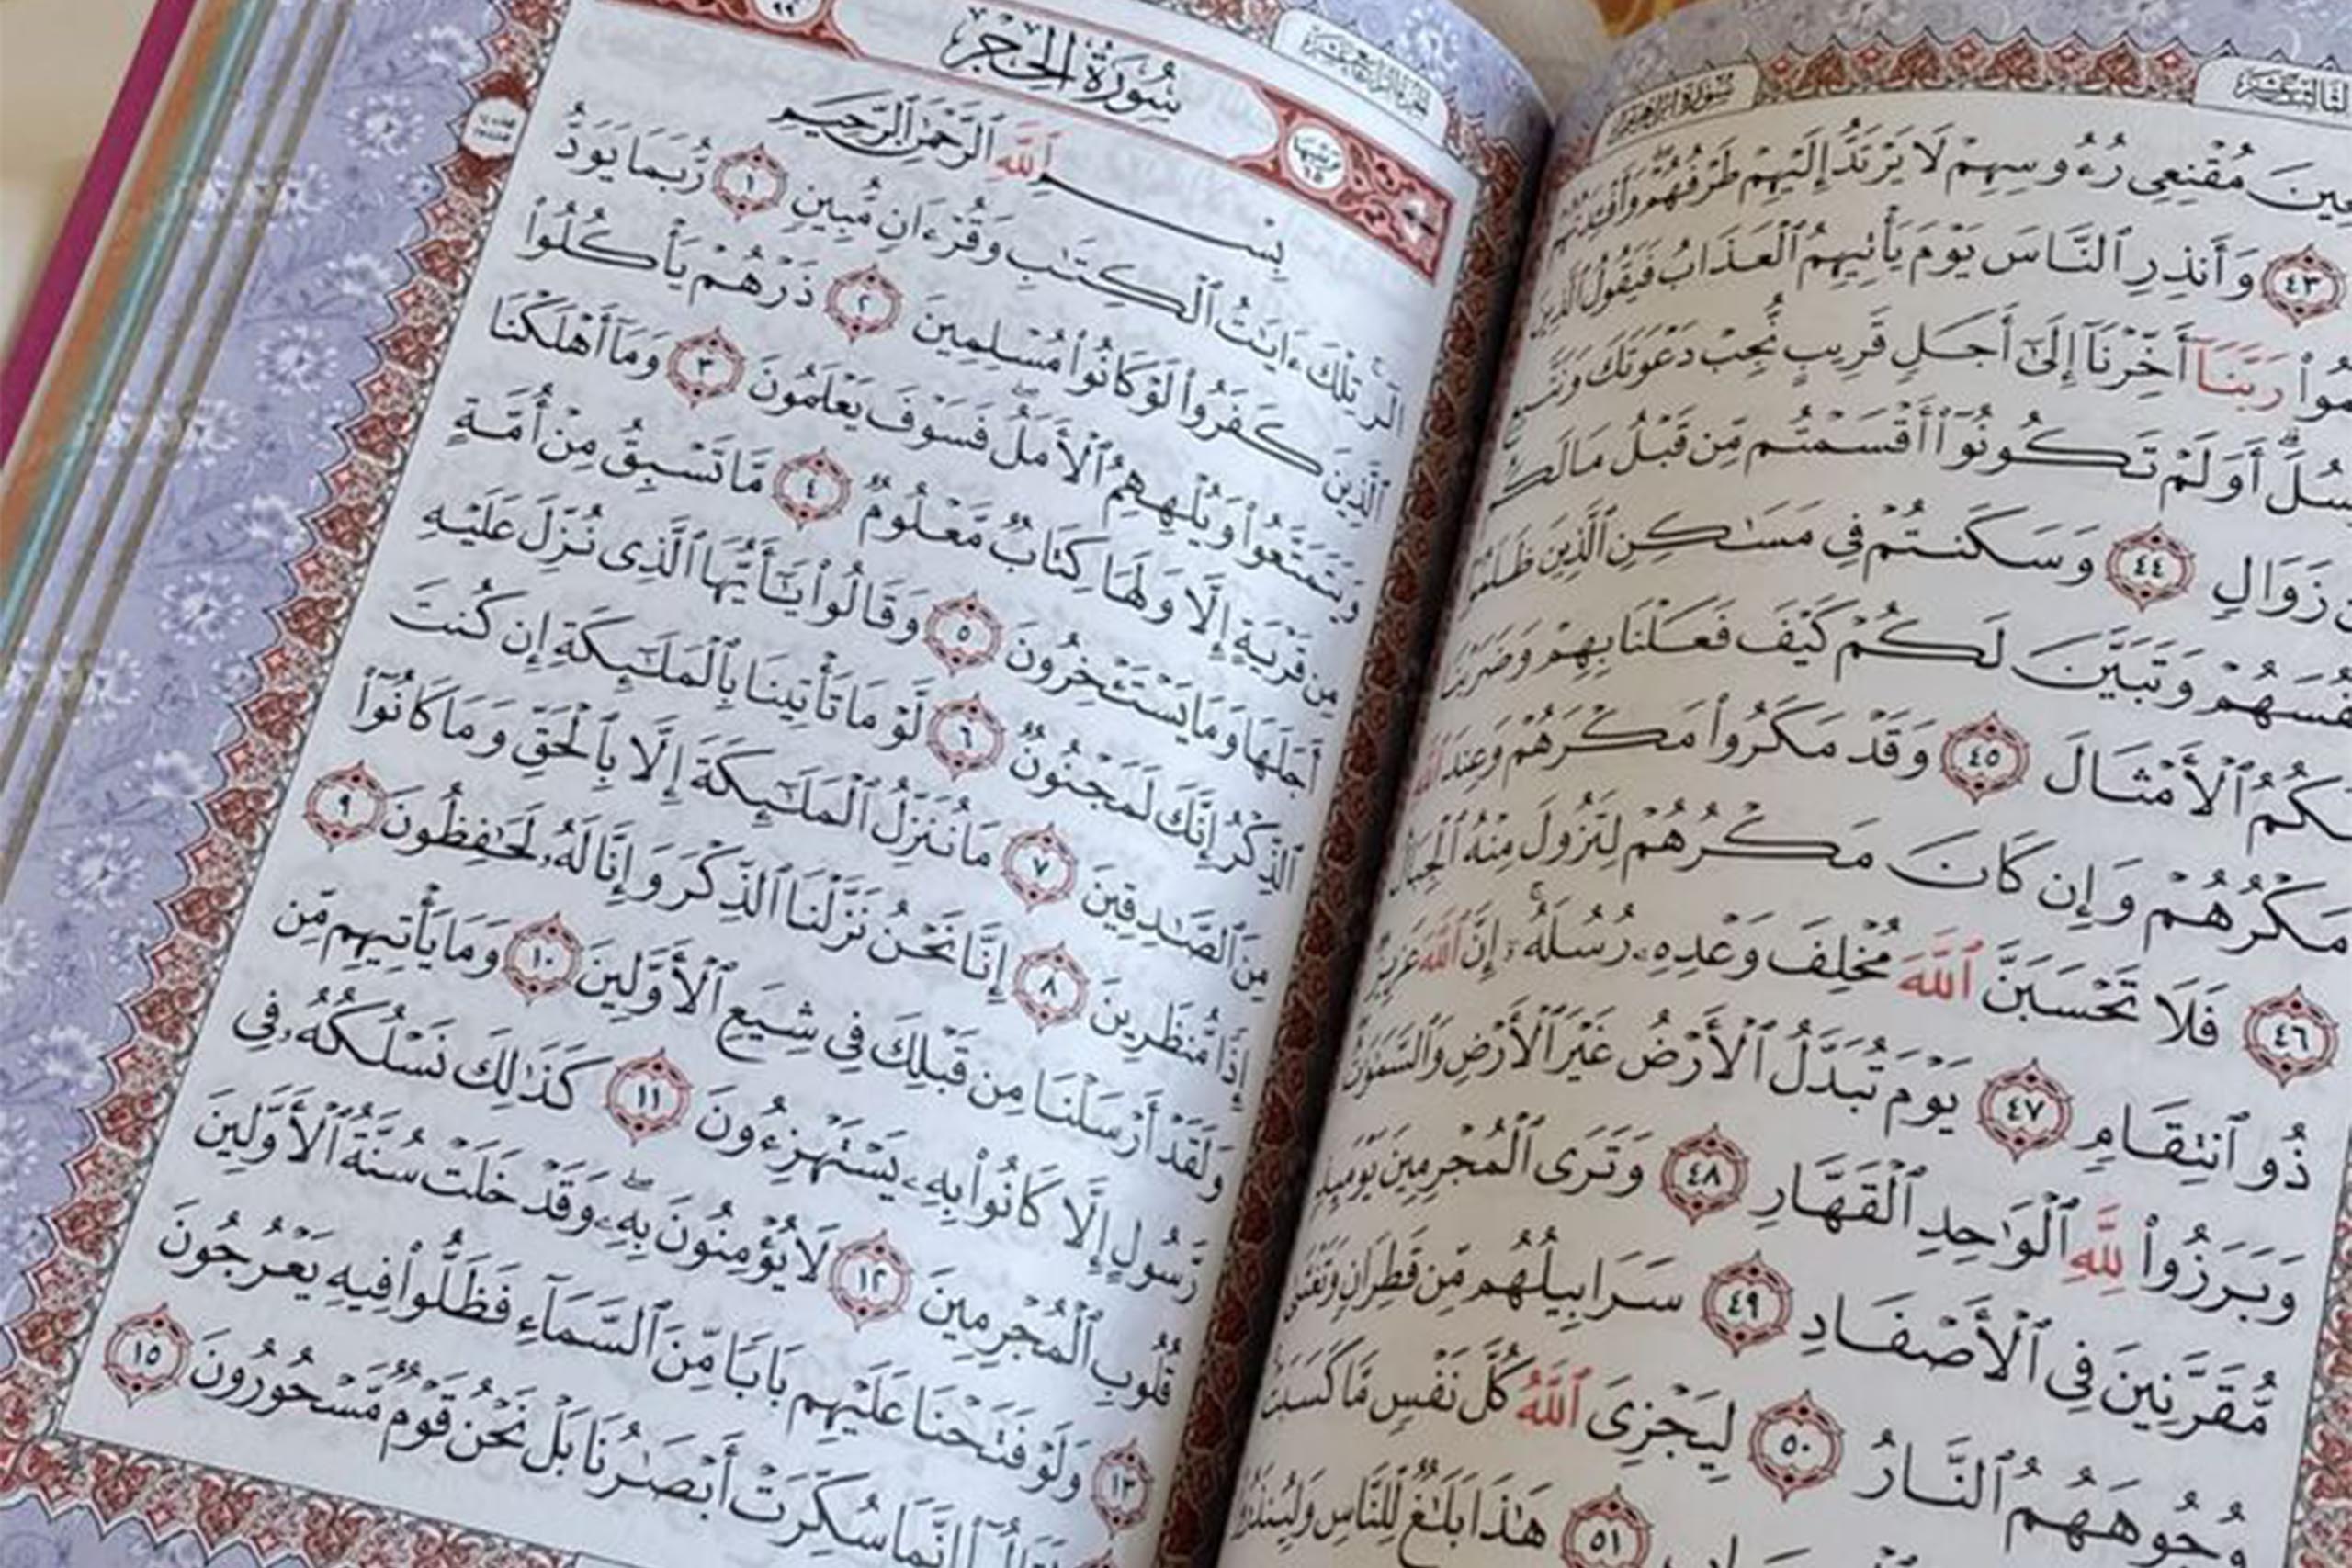 سُورَةُ إِبْرَاهِيمَ
مُقْنِعِى رُءُوسِهِمْ لَا يَرْتَدُّ إِلَيْهِمْ طَرْفُهُمْ وَأَفْـِٔدَتُهُمْ
٤٣ وَأَنذِرِ ٱلنَّاسَ يَوْمَ يَأْتِيهِمُ ٱلْعَذَابُ فَيَقُولُ ٱلَّذِينَ
رَبَّنَآ أَخِّرْنَآ إِلَىٰٓ أَجَلٍ قَرِيبٍ نُّجِبْ دَعْوَتَكَ وَنَتَّبِعِ
أَوَلَمْ تَكُونُوٓا۟ أَقْسَمْتُم مِّن قَبْلُ مَا لَكُم
زَوَالٍ ٤٤ وَسَكَنتُمْ فِى مَسَٰكِنِ ٱلَّذِينَ ظَلَمُوٓا۟
وَتَبَيَّنَ لَكُمْ كَيْفَ فَعَلْنَا بِهِمْ وَضَرَبْنَا
ٱلْأَمْثَالَ ٤٥ وَقَدْ مَكَرُوا۟ مَكْرَهُمْ وَعِندَ ٱللَّهِ
مَكْرُهُمْ وَإِن كَانَ مَكْرُهُمْ لِتَزُولَ مِنْهُ ٱلْجِبَالُ
٤٦ فَلَا تَحْسَبَنَّ ٱللَّهَ مُخْلِفَ وَعْدِهِۦ رُسُلَهُۥٓ ۗ إِنَّ ٱللَّهَ عَزِيزٌ
ذُو ٱنتِقَامٍ ٤٧ يَوْمَ تُبَدَّلُ ٱلْأَرْضُ غَيْرَ ٱلْأَرْضِ وَٱلسَّمَٰوَٰتُ
وَبَرَزُوا۟ لِلَّهِ ٱلْوَٰحِدِ ٱلْقَهَّارِ ٤٨ وَتَرَى ٱلْمُجْرِمِينَ يَوْمَئِذٍ
مُّقَرَّنِينَ فِى ٱلْأَصْفَادِ ٤٩ سَرَابِيلُهُم مِّن قَطِرَانٍ وَتَغْشَىٰ
وُجُوهَهُمُ ٱلنَّارُ ٥٠ لِيَجْزِىَ ٱللَّهُ كُلَّ نَفْسٍ مَّا كَسَبَتْ
٥١ هَٰذَا بَلَٰغٌ لِّلنَّاسِ وَلِيُنذَرُوا۟
سُورَةُ الْحِجْرِ
بِسْمِ ٱللَّهِ ٱلرَّحْمَٰنِ ٱلرَّحِيمِ
الٓر ۚ تِلْكَ ءَايَٰتُ ٱلْكِتَٰبِ وَقُرْءَانٍ مُّبِينٍ ١ رُّبَمَا يَوَدُّ
ٱلَّذِينَ كَفَرُوا۟ لَوْ كَانُوا۟ مُسْلِمِينَ ٢ ذَرْهُمْ يَأْكُلُوا۟
وَيَتَمَتَّعُوا۟ وَيُلْهِهِمُ ٱلْأَمَلُ ۖ فَسَوْفَ يَعْلَمُونَ ٣ وَمَآ أَهْلَكْنَا
مِن قَرْيَةٍ إِلَّا وَلَهَا كِتَابٌ مَّعْلُومٌ ٤ مَّا تَسْبِقُ مِنْ أُمَّةٍ
أَجَلَهَا وَمَا يَسْتَـْٔخِرُونَ ٥ وَقَالُوا۟ يَٰٓأَيُّهَا ٱلَّذِى نُزِّلَ عَلَيْهِ
ٱلذِّكْرُ إِنَّكَ لَمَجْنُونٌ ٦ لَّوْ مَا تَأْتِينَا بِٱلْمَلَٰٓئِكَةِ إِن كُنتَ
مِنَ ٱلصَّٰدِقِينَ ٧ مَا نُنَزِّلُ ٱلْمَلَٰٓئِكَةَ إِلَّا بِٱلْحَقِّ وَمَا كَانُوٓا۟
إِذًا مُّنظَرِينَ ٨ إِنَّا نَحْنُ نَزَّلْنَا ٱلذِّكْرَ وَإِنَّا لَهُۥ لَحَٰفِظُونَ ٩
وَلَقَدْ أَرْسَلْنَا مِن قَبْلِكَ فِى شِيَعِ ٱلْأَوَّلِينَ ١٠ وَمَا يَأْتِيهِم مِّن
رَّسُولٍ إِلَّا كَانُوا۟ بِهِۦ يَسْتَهْزِءُونَ ١١ كَذَٰلِكَ نَسْلُكُهُۥ فِى
قُلُوبِ ٱلْمُجْرِمِينَ ١٢ لَا يُؤْمِنُونَ بِهِۦ ۖ وَقَدْ خَلَتْ سُنَّةُ ٱلْأَوَّلِينَ
١٣ وَلَوْ فَتَحْنَا عَلَيْهِم بَابًا مِّنَ ٱلسَّمَآءِ فَظَلُّوا۟ فِيهِ يَعْرُجُونَ
لَقَالُوٓا۟ إِنَّمَا سُكِّرَتْ أَبْصَٰرُنَا بَلْ نَحْنُ قَوْمٌ مَّسْحُورُونَ ١٥